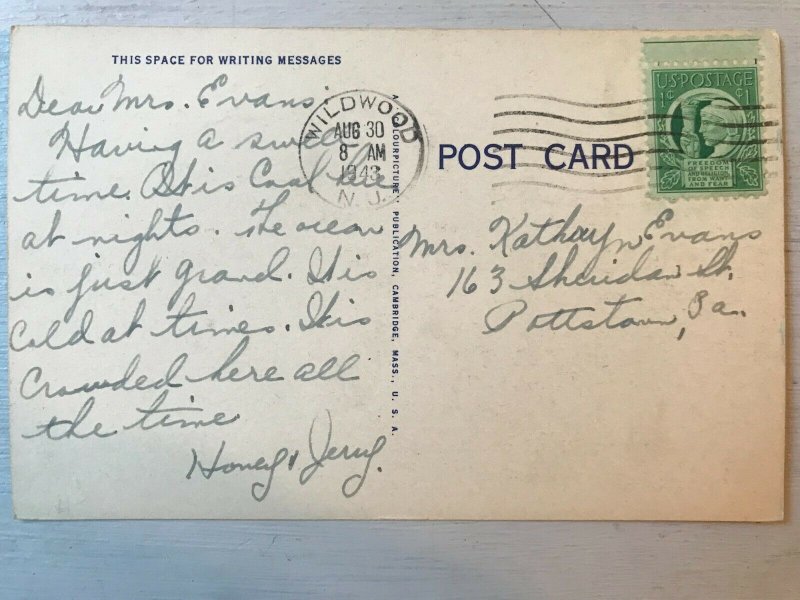 THIS SPACE FOR WRITING MESSAGES
Dear Mrs. Evans:
Having a sweet
time. It is Cool here
at nights. The ocean
is just grand. It is
Cold at times. It is
Crowded here all
the time
Honey & Jerry.
WILDWOOD
AUG 30
8 AM
1943
N. J.
A "COLOURPICTURE" PUBLICATION, CAMBRIDGE, MASS., U. S. A.
POST CARD
U.S. POSTAGE
1¢ 1¢
FREEDOM
OF SPEECH
AND RELIGION,
FROM WANT
AND FEAR
Mrs. Kathryn Evans
163 Sheridan St.
Pottstown, Pa.